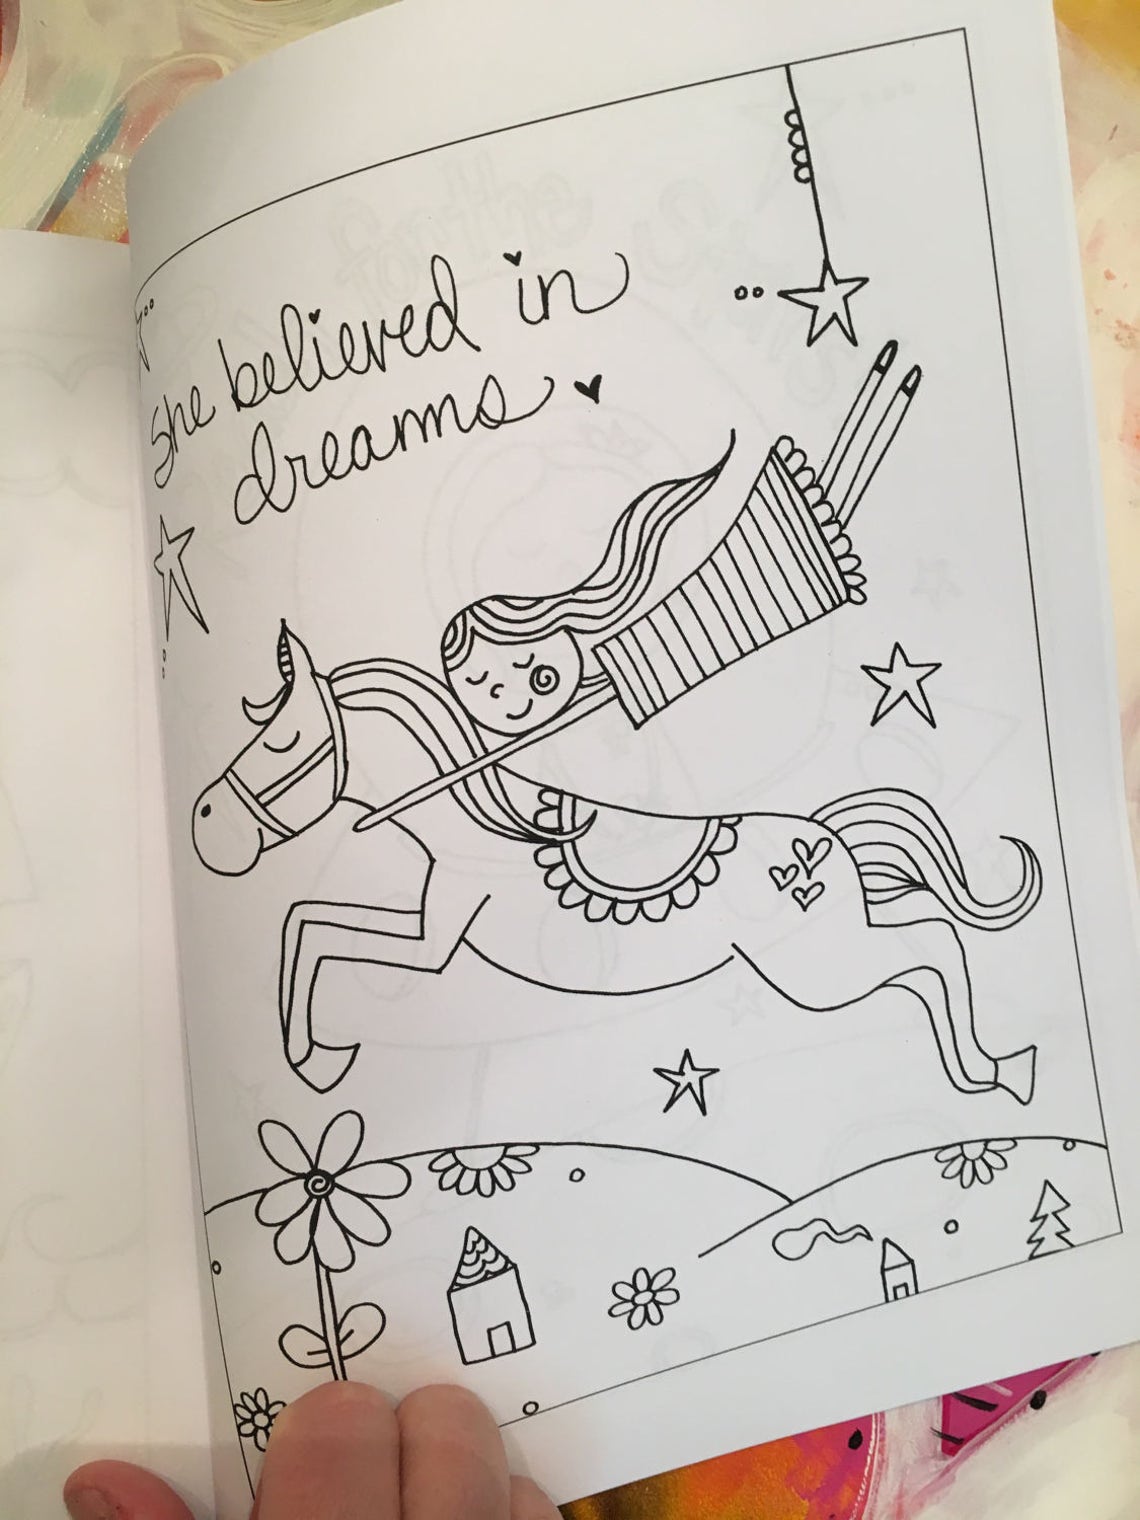 she believed in
dreams